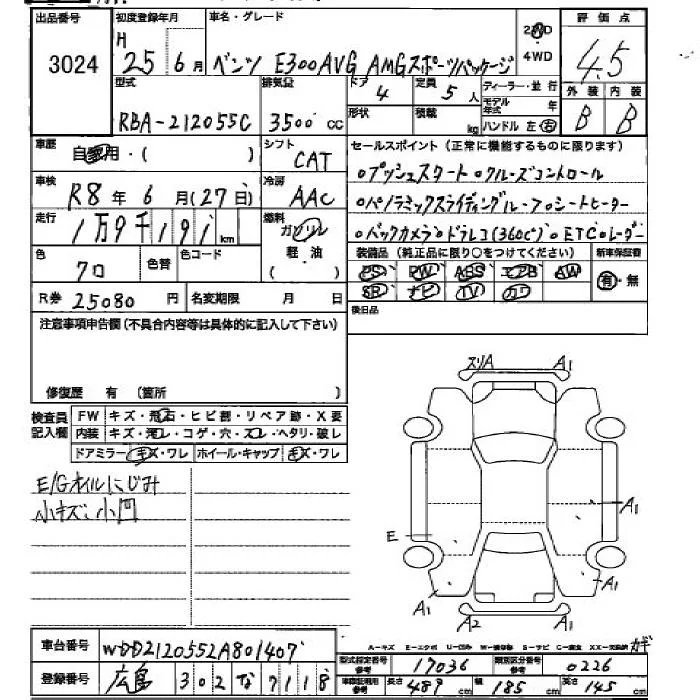 出品番号 初度登録年月 車名・グレード 評価点
3024 H 25 6月 ベンツ E300AVG AMGスポーツパッケージ 2WD 4WD 4.5
型式 排気量 ドア 4 定員 5人 ディーラー・並行 外装 内装
RBA-212055C 3500cc 形状 積載 kg モデル年式 年 ハンドル 左 右 B B
車歴 自家用・( ) シフト CAT セールスポイント(正常に機能するものに限ります)
車検 R8年6月(27日) 冷房 AAC ○プッシュスタート○クルーズコントロール
走行 1万9千191km 燃料 ガソリン 軽・油 ○パノラミックスライディングルーフ○シートヒーター
○バックカメラ○ドラレコ(360°)○ETC○レーダー
色 クロ 色替 色コード 装備品(純正品に限り○をつけてください) 新車保証書
PS PW ABS エアB AW 有・無
R券 25080円 名変期限 月 日 SR ナビ TV カワ
後日品
注意事項申告欄(不具合内容等は具体的に記入して下さい)
修復歴 有 (箇所 )
スリA A1
検査員記入欄 FW キズ・飛石・ヒビ割・リペア跡・X要
内装 キズ・汚レ・コゲ・穴・スレ・ヘタリ・破レ
ドアミラー キズ・ワレ ホイール・キャップ キズ・ワレ
E/Gオイルにじみ
小キズ、小凹
A1
E
A1 A1
A2 A1
A-キズ E-エクボ U-凹み W-補修跡 S-サビ C-腐食 XX-交換済 カギ
車台番号 WDD2120552A801407
登録番号 広島 302 な 7118
型式指定番号 参考 17036 類別区分番号 参考 0226
車検証明用 参考 長さ 489cm 幅 185cm 高さ 145cm